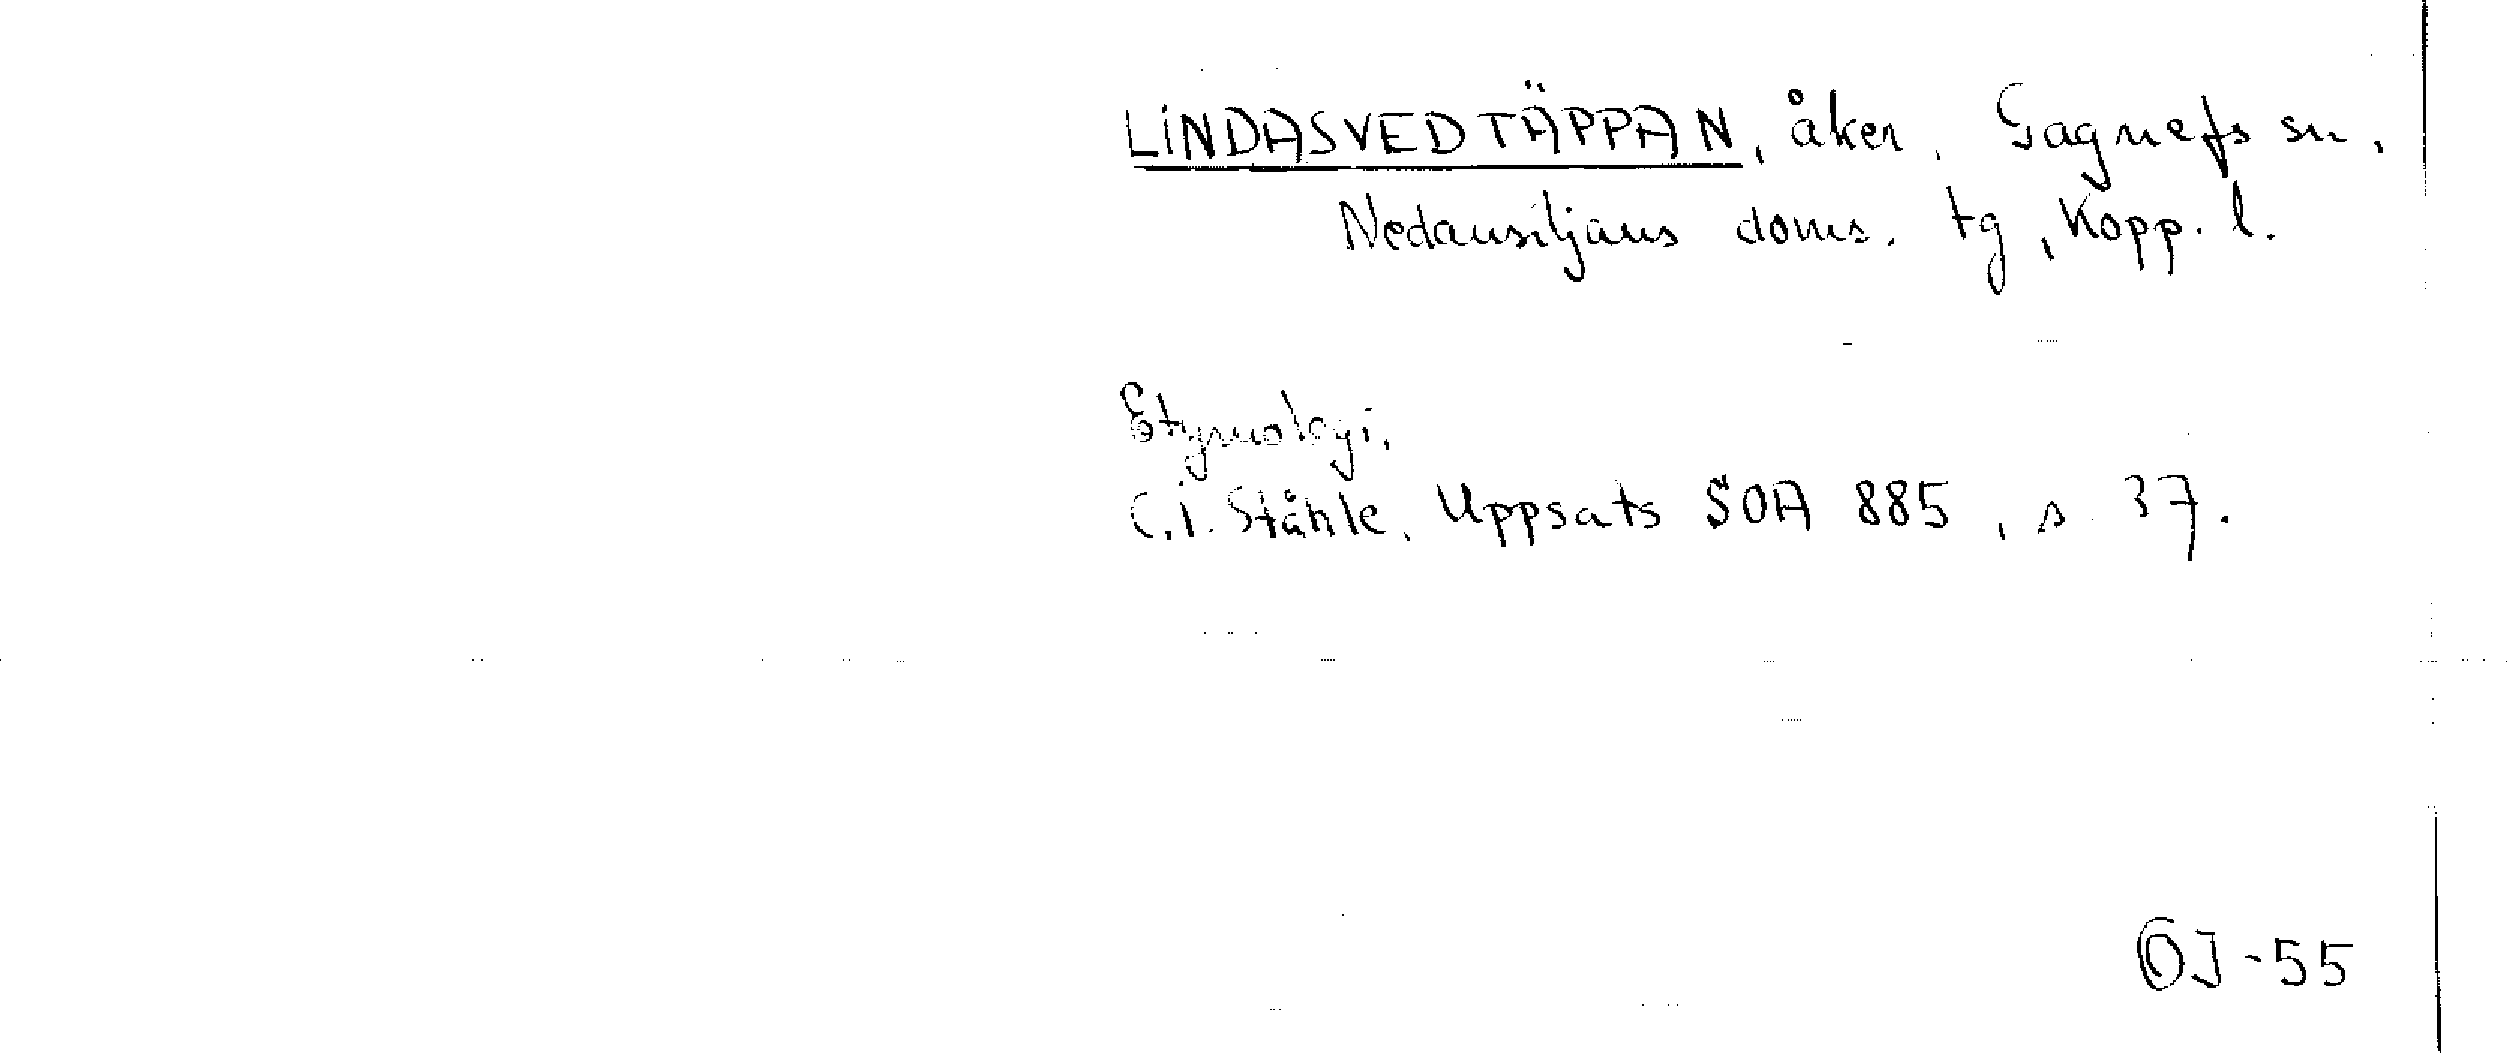 LINDASVEDTÄPPAN, åker, Gagnefs sn,
Nedansiljans doms. tg, Kopp. l.
Etymologi,
C.I. Ståhle, Uppsats SOA 885, s 37.
OJ-55